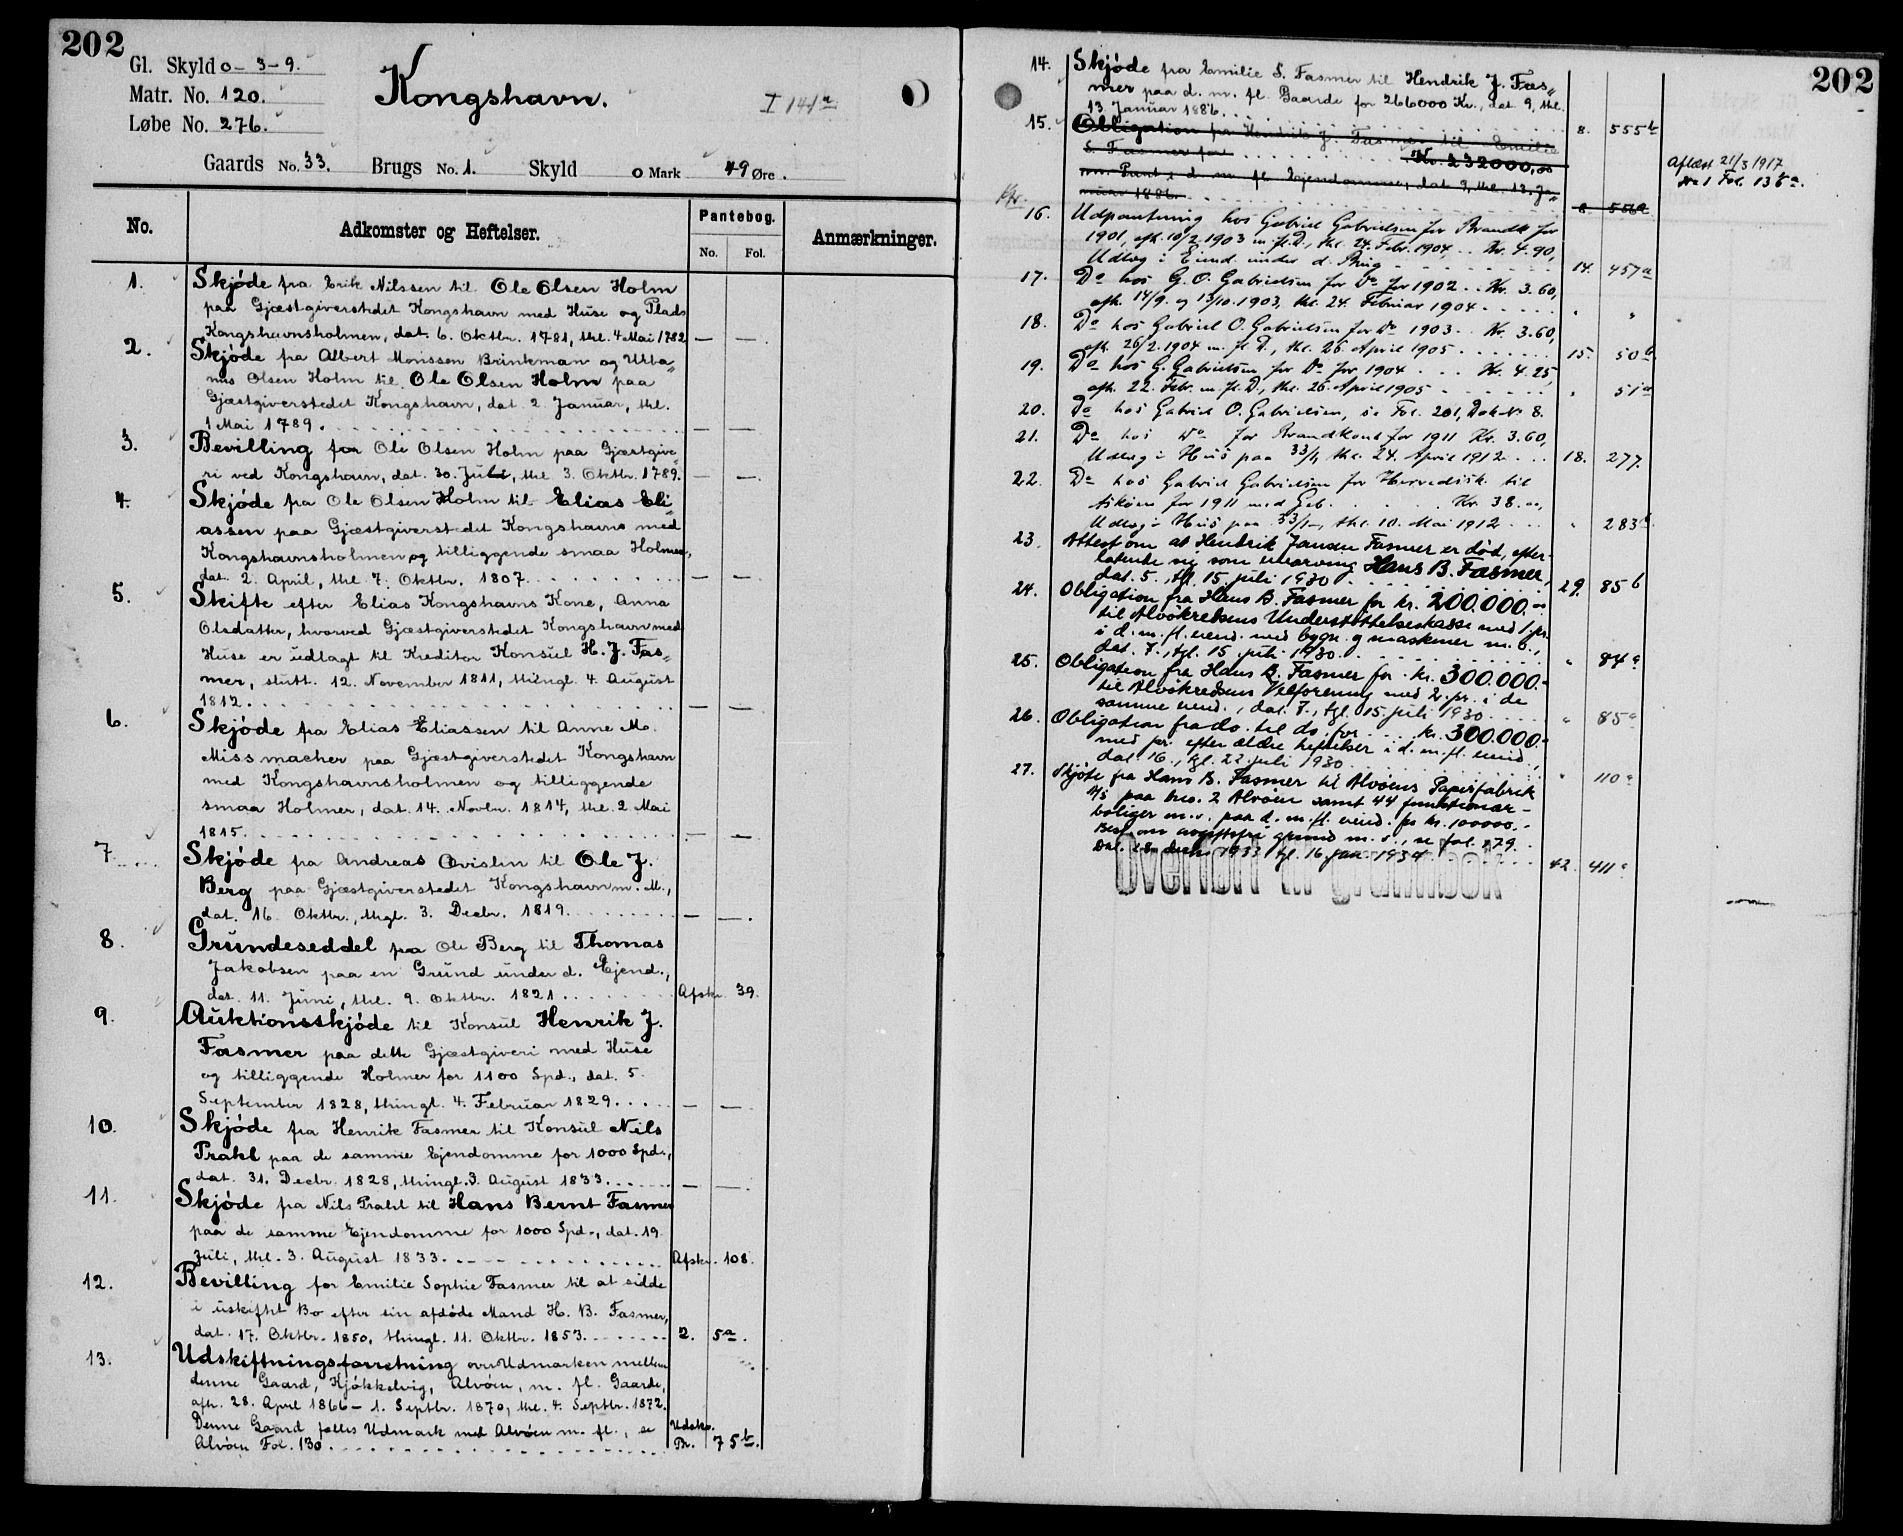 202
Gl. Skyld 0-3-9.
Matr. No. 120.
Løbe No. 276.
Kongshavn.
I 141a
Gaards No. 33. Brugs No. 1. Skyld 0 Mark 49 Øre.
No. Adkomster og Heftelser. Pantebog. Anmærkninger.
No. Fol.
1. Skjøde fra Erik Nilssen til Ole Olsen Holm
paa Gjæstgiverstedet Kongshavn med Huse og Plads
Kongshavnsholmen, dat. 6. Oktbr. 1781, thl. 4 Mai 1782 — —
2. Skjøde fra Albert Monssen Brinkman og Urba„
nus Olsen Holm til Ole Olsen Holm paa
Gjæstgiverstedet Kongshavn, dat 2 Januar, thl.
1 Mai 1789. — —
3. Bevilling for Ole Olsen Holm paa Gjæstgive„
ri ved Kongshavn, dat. 30. Juli, thl 3. Oktbr. 1789. — —
4. Skjøde fra Ole Olsen Holm til Elias Eli„
assen paa Gjæstgiverstedet Kongshavn med
Kongshavnsholmen og tilliggende smaa Holmer,
dat. 2. April, thl 7. Oktbr. 1807. — —
5. Skifte efter Elias Kongshavns Kone, Anna
Olsdatter, hvorved Gjæstgiverstedet Kongshavn med
Huse er udlagt til Kreditor Konsul H. J. Fas„
mer, slutt. 12. November 1811, thingl. 4. August
1812. — —
6. Skjøde fra Elias Eliassen til Anne M.
Missmacher paa Gjæstgiverstedet Kongshavn
med Kongshavnsholmen og tilliggende
smaa Holmer, dat. 14. Novbr. 1814, thl. 2. Mai
1815. — —
7. Skjøde fra Andreas Qvislin til Ole J.
Berg paa Gjæstgiverstedet Kongshavn m. M.,
dat. 16. Oktbr., thgl. 3. Decbr. 1819. — —
8. Grundeseddel fra Ole Berg til Thomas
Jakobsen paa en Grund under d. Ejend.,
dat. 11. Juni, thl. 9. Oktbr. 1821. Afskr. 39.
9. Auktionsskjøde til Konsul Henrik J.
Fasmer paa dette Gjæstgiveri med Huse
og tilliggende Holmer for 1100 Spd., dat. 5.
September 1828, thingl. 4. Februar 1829. — —
10. Skjøde fra Henrik Fasmer til Konsul Nils
Prahl paa de samme Ejendomme for 1000 Spd.,
dat. 31. Decbr. 1828, thingl. 3. August 1833. — —
11. Skjøde fra Nils Prahl til Hans Bernt Fasmer
paa de samme Ejendomme for 1000 Spd., dat. 19.
Juli, thl. 3. August 1833. Afskr. 108.
12. Bevilling for Emilie Sophie Fasmer til at sidde
i uskiftet Bo efter sin afdøde Mand H. B. Fasmer,
dat. 17. Oktbr. 1850, thingl. 11. Oktbr. 1853. 2. 5a.
13. Udskiftningsforretning over Udmarken mellem
denne Gaard, Kjøkkelvig, Alvøen, m. fl. Gaarde,
afh. 28. April 1866 – 1. Septbr. 1870, thl. 4. Septbr. 1872.
Denne Gaard fælles Udmark med Alvøen m. fl., se Udskr.
Alvøen Fol. 130. Pr. 75b.
202
14. Skjøde fra Emilie S. Fasmer til Hendrik J. Fas„
mer paa d. m. fl. Gaarde for 266000 Kr., dat. 9, thl.
13. Januar 1886. 8. 555b
15. Obligation fra Hendrik J. Fasmer til Emilie
S. Fasmer for Kr. 232000,00
m. Pant i d. m. fl. Ejendomme, dat. 9, thl. 13. Ja„
nuar 1886. 8 556a
Aflæst 21/3 1917
No 1 Fol. 136a.
16. Udpantning hos Gabriel Gabrielsen for Brandk for
1901, afh. 10/2 1903 m. fl. D., thl. 24. Febr. 1904, Kr. 4.90,
Udlæg i Eiend. under d. Brug 14. 457a
17. Do hos G. O. Gabrielsen for Do for 1902 Kr. 3.60,
afh. 14/9. og 13/10. 1903, thl. 24. Februar 1904 „ „
18. Do hos Gabriel O. Gabrielsen for Do 1903 Kr. 3.60,
afh. 26/2. 1904 m. fl. D., thl. 26. April 1905 15. 50b
19. Do hos G. Gabrielsen for Do for 1904 Kr. 4.25,
afh. 22. Febr. m. fl. D., thl. 26. April 1905 „ 51a
20. Do hos Gabriel O. Gabrielsen, se Fol. 201, Dok No 8.
21. Do hos Do for Brandkont for 1911 Kr. 3.60,
Udlæg i Hus paa 33/1, thl. 24. April 1912 18. 277
22. Do hos Gabriel Gabrielsen for Herredssk til
for 1911 med Geb. Kr. 38.00,
Udlæg i Hus paa 33/1, thl. 10. Mai 1912 „ 283b
23. Attest om at Hendrik Jansen Fasmer er død, efter-
latende sig som enearving Hans B. Fasmer,
dat. 5., tgl. 15. juli 1930 29. 85b
24. Obligation fra Hans B. Fasmer for kr. 200.000.00
til Alvøkredsens Understøttelseskasse med 1. pr.
i d. m. fl. eiend. med bygn. og maskiner m. v.,
dat. 7., tgl. 15 juli 1930. „ 84a
25. Obligation fra Hans B. Fasmer for kr. 300.000.-
til Alvøkredsens Velforening med 2. pr. i de
samme eiend., dat. 7., tgl. 15. juli 1930 „ 85a
26. Obligation fra do. til do. for kr. 300.000.-
med pr. efter ældre heftelser i d. m. fl. eiend.,
dat. 16., tgl. 22 juli 1930 „ 110a
27. Skjøte fra Hans B. Fasmer til Alvøens Papirfabrik
A/S paa bno. 2 Alvøen samt 44 funktionær-
boliger m. v. paa d. m. fl. eiend. for kr. 100000.-
Best. om avgiftsfri grund m. v., se fol. 179.
Dat. 28. decbr. 1933 tgl. 16. jan. 1934 42. 411a
Overført til grunnbok